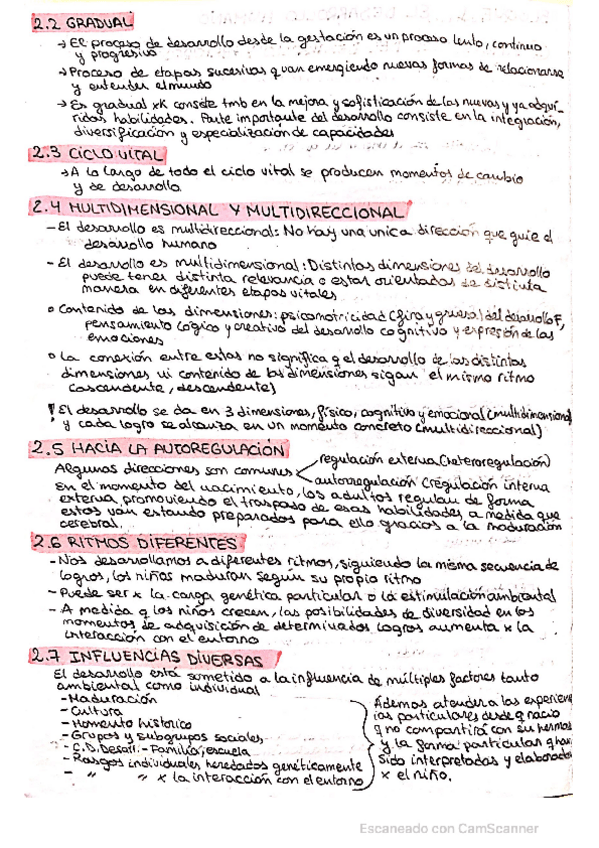 2.2 GRADUAL
→ El proceso de desarrollo desde la gestación es un proceso lento, continuo
y progresivo
→ Proceso de etapas sucesivas q van emergiendo nuevas formas de relacionarse
y entender el mundo
→ Es gradual xk consiste tmb en la mejora y sofisticación de las nuevas y ya adqui-
ridas habilidades. Parte importante del desarrollo consiste en la integración,
diversificación y especialización de capacidades
2.3 CICLO VITAL
→ A lo largo de todo el ciclo vital se producen momentos de cambio
y de desarrollo
2.4 MULTIDIMENSIONAL Y MULTIDIRECCIONAL
- El desarrollo es multidireccional: No hay una unica dirección que guie el
desarrollo humano
- El desarrollo es multidimensional: Distintas dimensiones del desarrollo
puede tener distinta relevancia o estar orientadas de distinta
manera en diferentes etapas vitales
o Contenido de las dimensiones: psicomotricidad (fina y gruesa) del desarrollo F,
pensamiento logico y creativo del desarrollo cognitivo y expresión de las
emociones
o La conexión entre estas no significa q el desarrollo de las distintas
dimensiones ni contenido de las dimensiones sigan el mismo ritmo
(ascendente, descendente)
! El desarrollo se da en 3 dimensiones, físico, cognitivo y emocional (multidimensional)
y cada logro se alcanza en un momento concreto (multidireccional)
2.5 HACIA LA AUTOREGULACIÓN
Algunas direcciones son comunes
regulación externa (heteroregulación)
autorregulación (regulación interna
En el momento del nacimiento, los adultos regulan de forma
externa, promoviendo el traspaso de esas habilidades a medida que
estos van estando preparados para ello gracias a la maduración
cerebral.
2.6 RITMOS DIFERENTES
- Nos desarrollamos a diferentes ritmos, siguiendo la misma secuencia de
logros, los niños maduran según su propio ritmo
- Puede ser x la carga genética particular o la estimulación ambiental
- A medida q los niños crecen, las posibilidades de diversidad en los
momentos de adquisición de determinados logros aumenta x la
interacción con el entorno
2.7 INFLUENCIAS DIVERSAS
El desarrollo está sometido a la influencia de múltiples factores tanto
ambiental como individual
- Maduración
- Cultura
- Momento histórico
- Grupos y subgrupos sociales
- C.D. Desarr. - Familia, escuela
- Rasgos individuales heredados genéticamente
- " " x la interacción con el entorno
Ademas atender a las experien
cias particulares desde q nació
q no compartirá con su hermano
y la forma particular q han
sido interpretadas y elaboradas
x el niño.
Escaneado con CamScanner